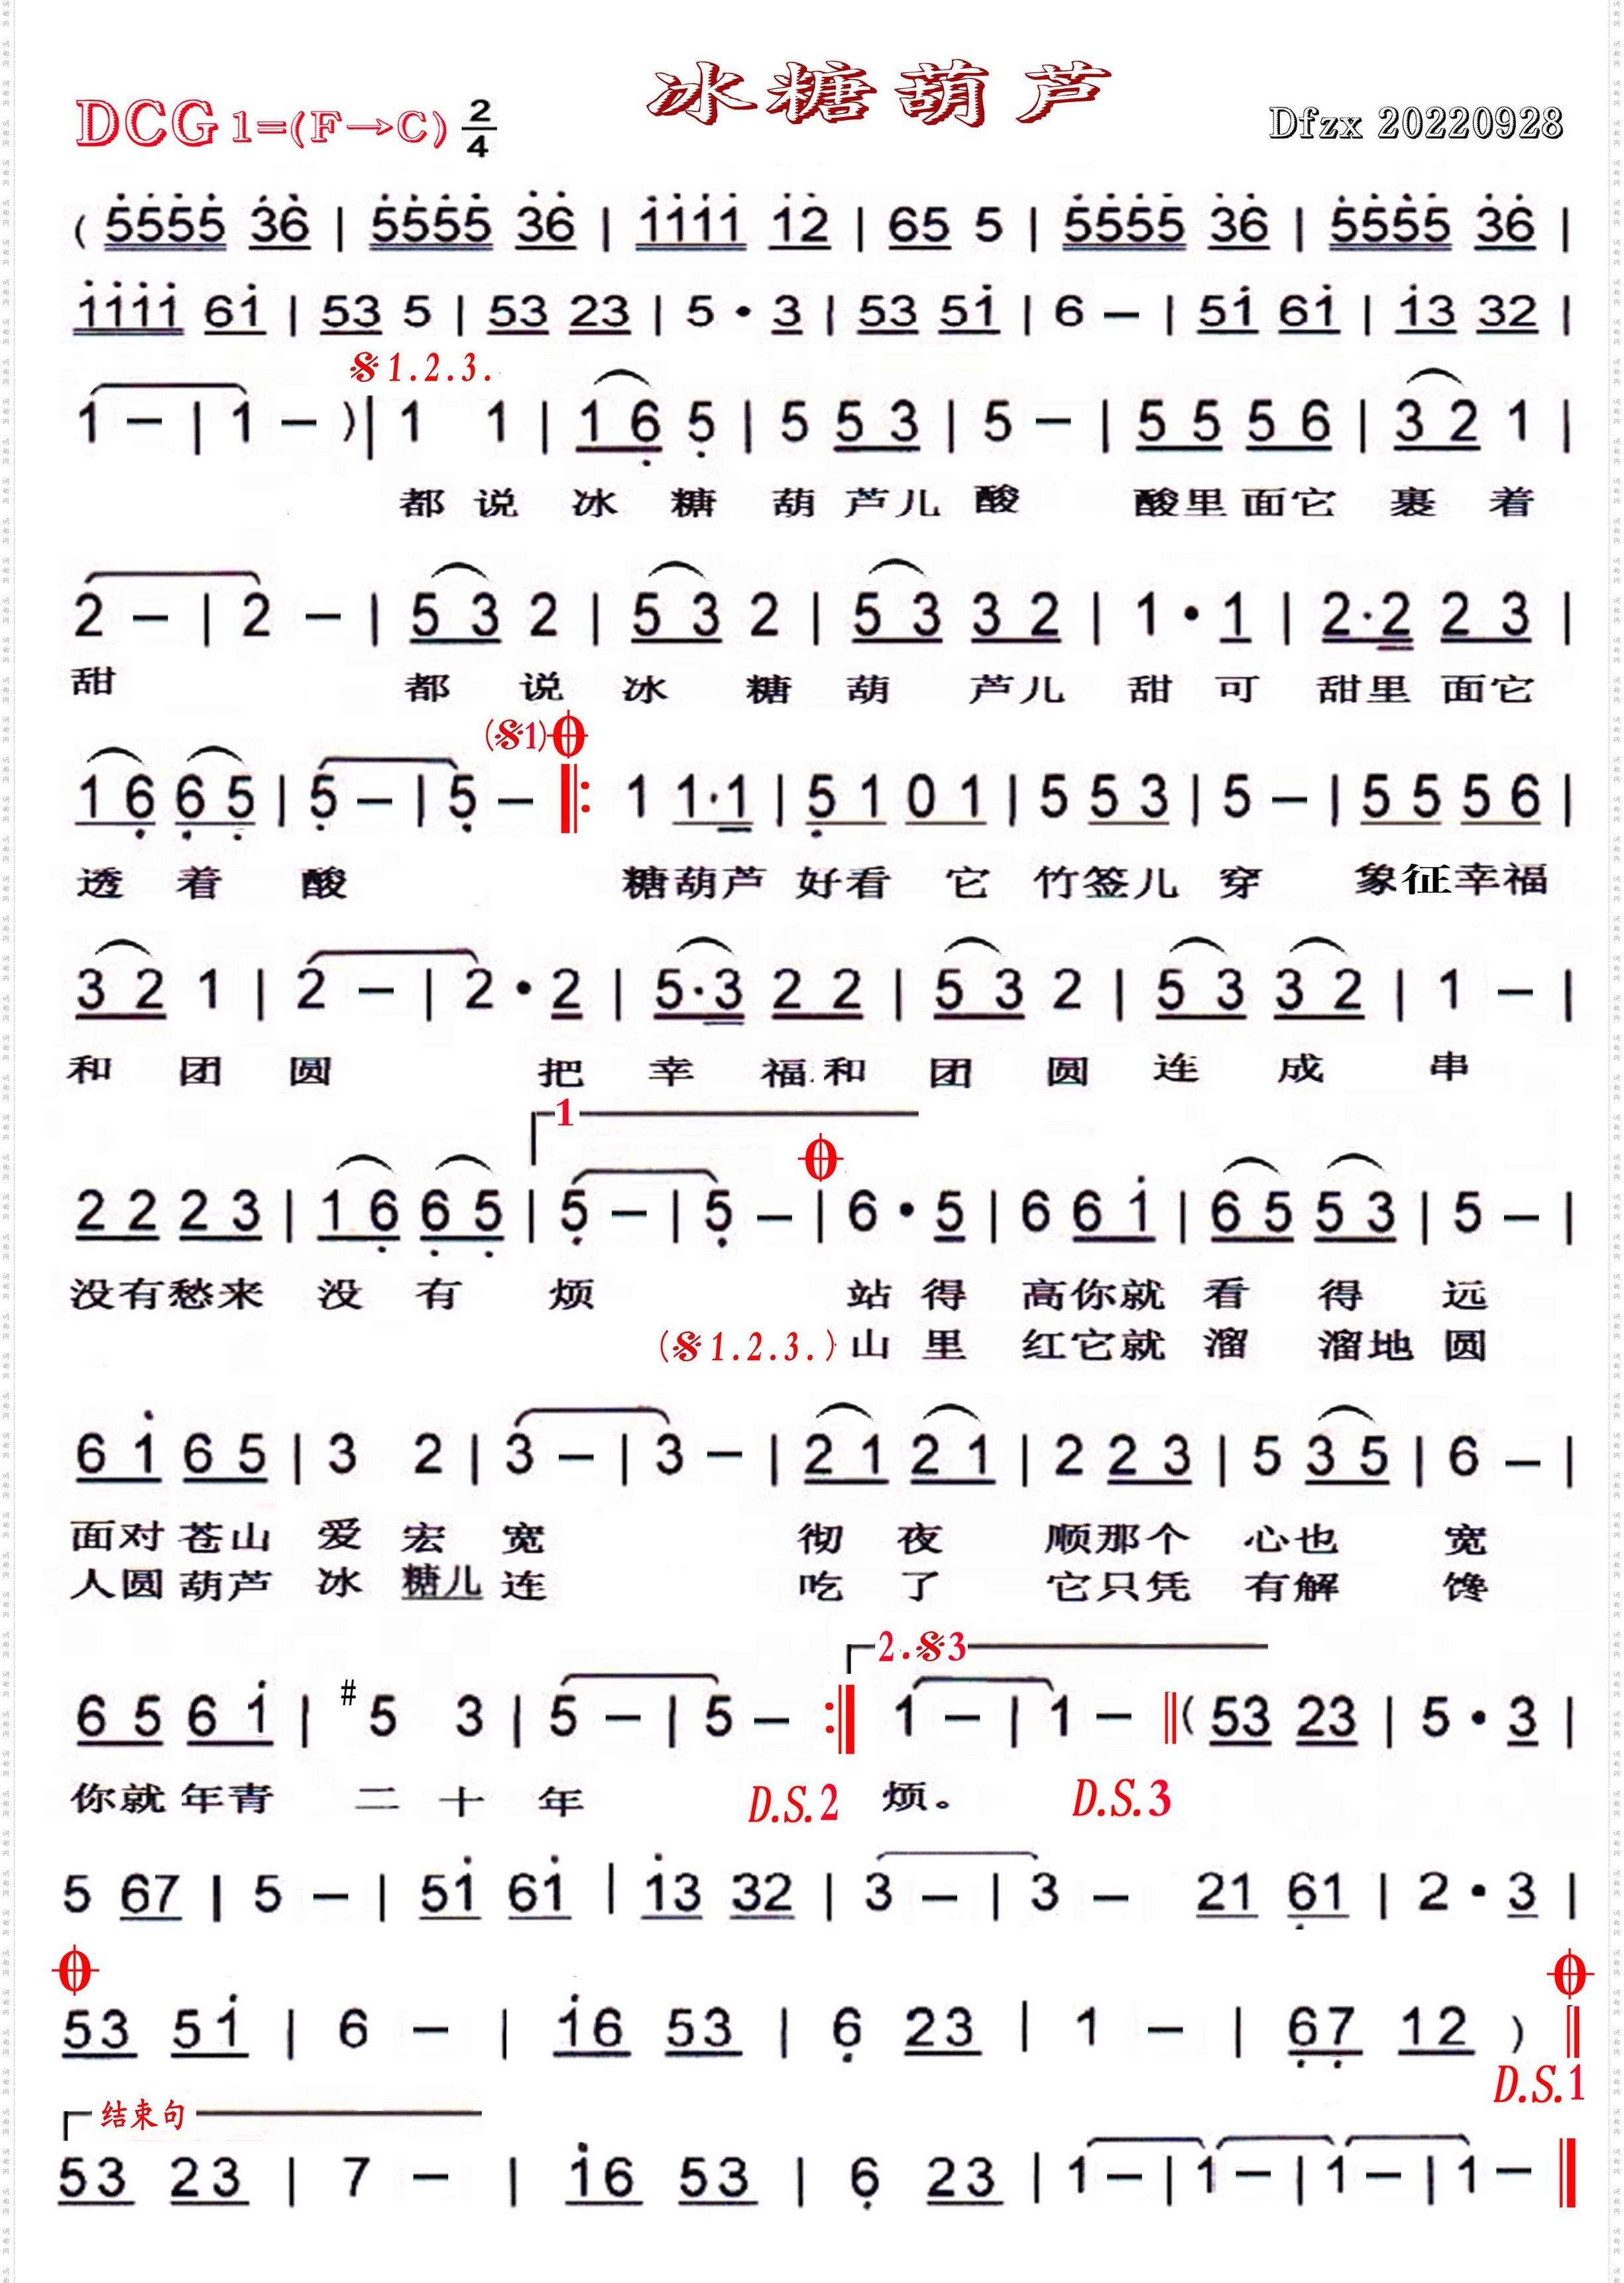 冰糖葫芦
DCG 1=(F→C) 2/4
Dfzx 20220928
( 5555 36 | 5555 36 | 1111 12 | 65 5 | 5555 36 | 5555 36 |
1111 61 | 53 5 | 53 23 | 5 · 3 | 53 51 | 6 — | 51 61 | 13 32 |
𝄋 1.2.3.
1 — | 1 — )| 1 1 | 1 6 5 | 5 5 3 | 5 — | 5 5 5 6 | 3 2 1 |
都 说 冰 糖 葫 芦儿 酸 酸里面它 裹 着
2 — | 2 — | 5 3 2 | 5 3 2 | 5 3 3 2 | 1 · 1 | 2·2 2 3 |
甜 都 说 冰 糖 葫 芦儿 甜 可 甜里 面它
(𝄋1)𝄌
1 6 6 5 | 5 — | 5 — 𝄆 1 1·1 | 5 1 0 1 | 5 5 3 | 5 — | 5 5 5 6 |
透 着 酸 糖葫芦 好看 它 竹签儿 穿 象征幸福
3 2 1 | 2 — | 2 · 2 | 5·3 2 2 | 5 3 2 | 5 3 3 2 | 1 — |
和 团 圆 把 幸 福和 团 圆 连 成 串
1 𝄌
2 2 2 3 | 1 6 6 5 | 5 — | 5 — | 6 · 5 | 6 6 1 | 6 5 5 3 | 5 — |
没有愁来 没 有 烦 站 得 高你就 看 得 远
(𝄋 1.2.3.) 山 里 红它就 溜 溜地 圆
6 1 6 5 | 3 2 | 3 — | 3 — | 2 1 2 1 | 2 2 3 | 5 3 5 | 6 — |
面对 苍山 爱 宏 宽 彻 夜 顺那个 心也 宽
人圆 葫芦 冰 糖儿 连 吃 了 它只凭 有解 馋
2.𝄋3
6 5 6 1 | #5 3 | 5 — | 5 — 𝄇 1 — | 1 — ‖( 53 23 | 5 · 3 |
你就 年青 二 十 年 D.S.2 烦。 D.S.3
5 67 | 5 — | 51 61 | 13 32 | 3 — | 3 — 21 61 | 2 · 3 |
𝄌 𝄌
53 51 | 6 — | 16 53 | 6 23 | 1 — | 67 12 ) ‖
D.S.1
结束句
53 23 | 7 — | 16 53 | 6 23 | 1 — | 1 — | 1 — | 1 — ‖